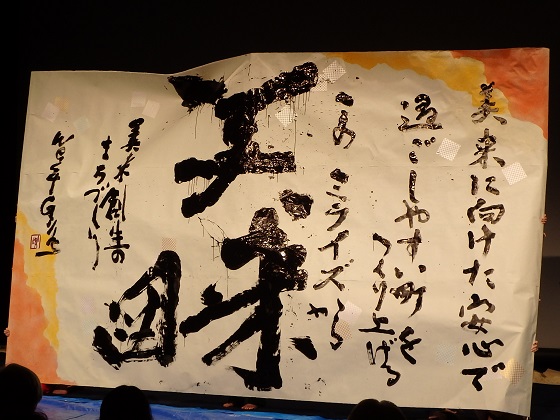 美来に向けた安心で
過ごしやすい町を
つくり上げる
ミライズ
美来
図
美来創生の
まちづくり